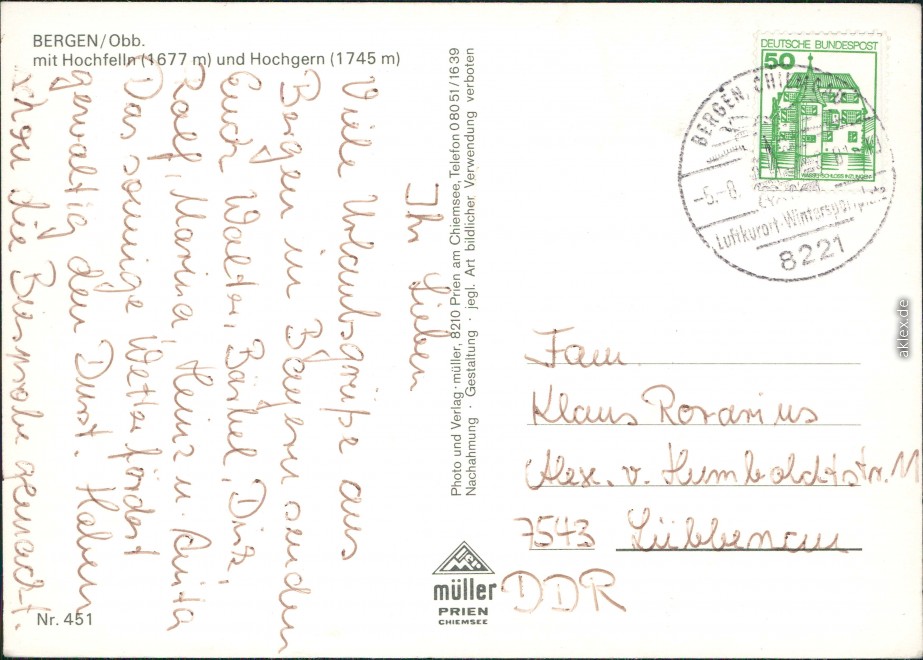 BERGEN/Obb.
mit Hochfelln (1677 m) und Hochgern (1745 m)
Ihr Lieben
Viele Urlaubsgrüße aus
Bergen in Bayern senden
Euch Walter, Bärbel, Dirk,
Ralf, Marina, Heinz u. Anita
Das sonnige Wetter fördert
gewaltig den Durst. Haben
schon die Bierprobe gemacht.
Nr. 451
Photo und Verlag · müller, 8210 Prien am Chiemsee, Telefon 0 80 51 / 16 39
Nachahmung · Gestaltung · jegl. Art bildlicher Verwendung verboten
müller
PRIEN
CHIEMSEE
DEUTSCHE BUNDESPOST
50
WASSERSCHLOSS INZLINGEN
BERGEN, CHIEMGAU
-6.-8.
Luftkurort-Wintersportplatz
8221
Fam
Klaus Rorarius
Alex. v. Humboldtstr. 11
7543 Lübbenau
DDR
aklex.de